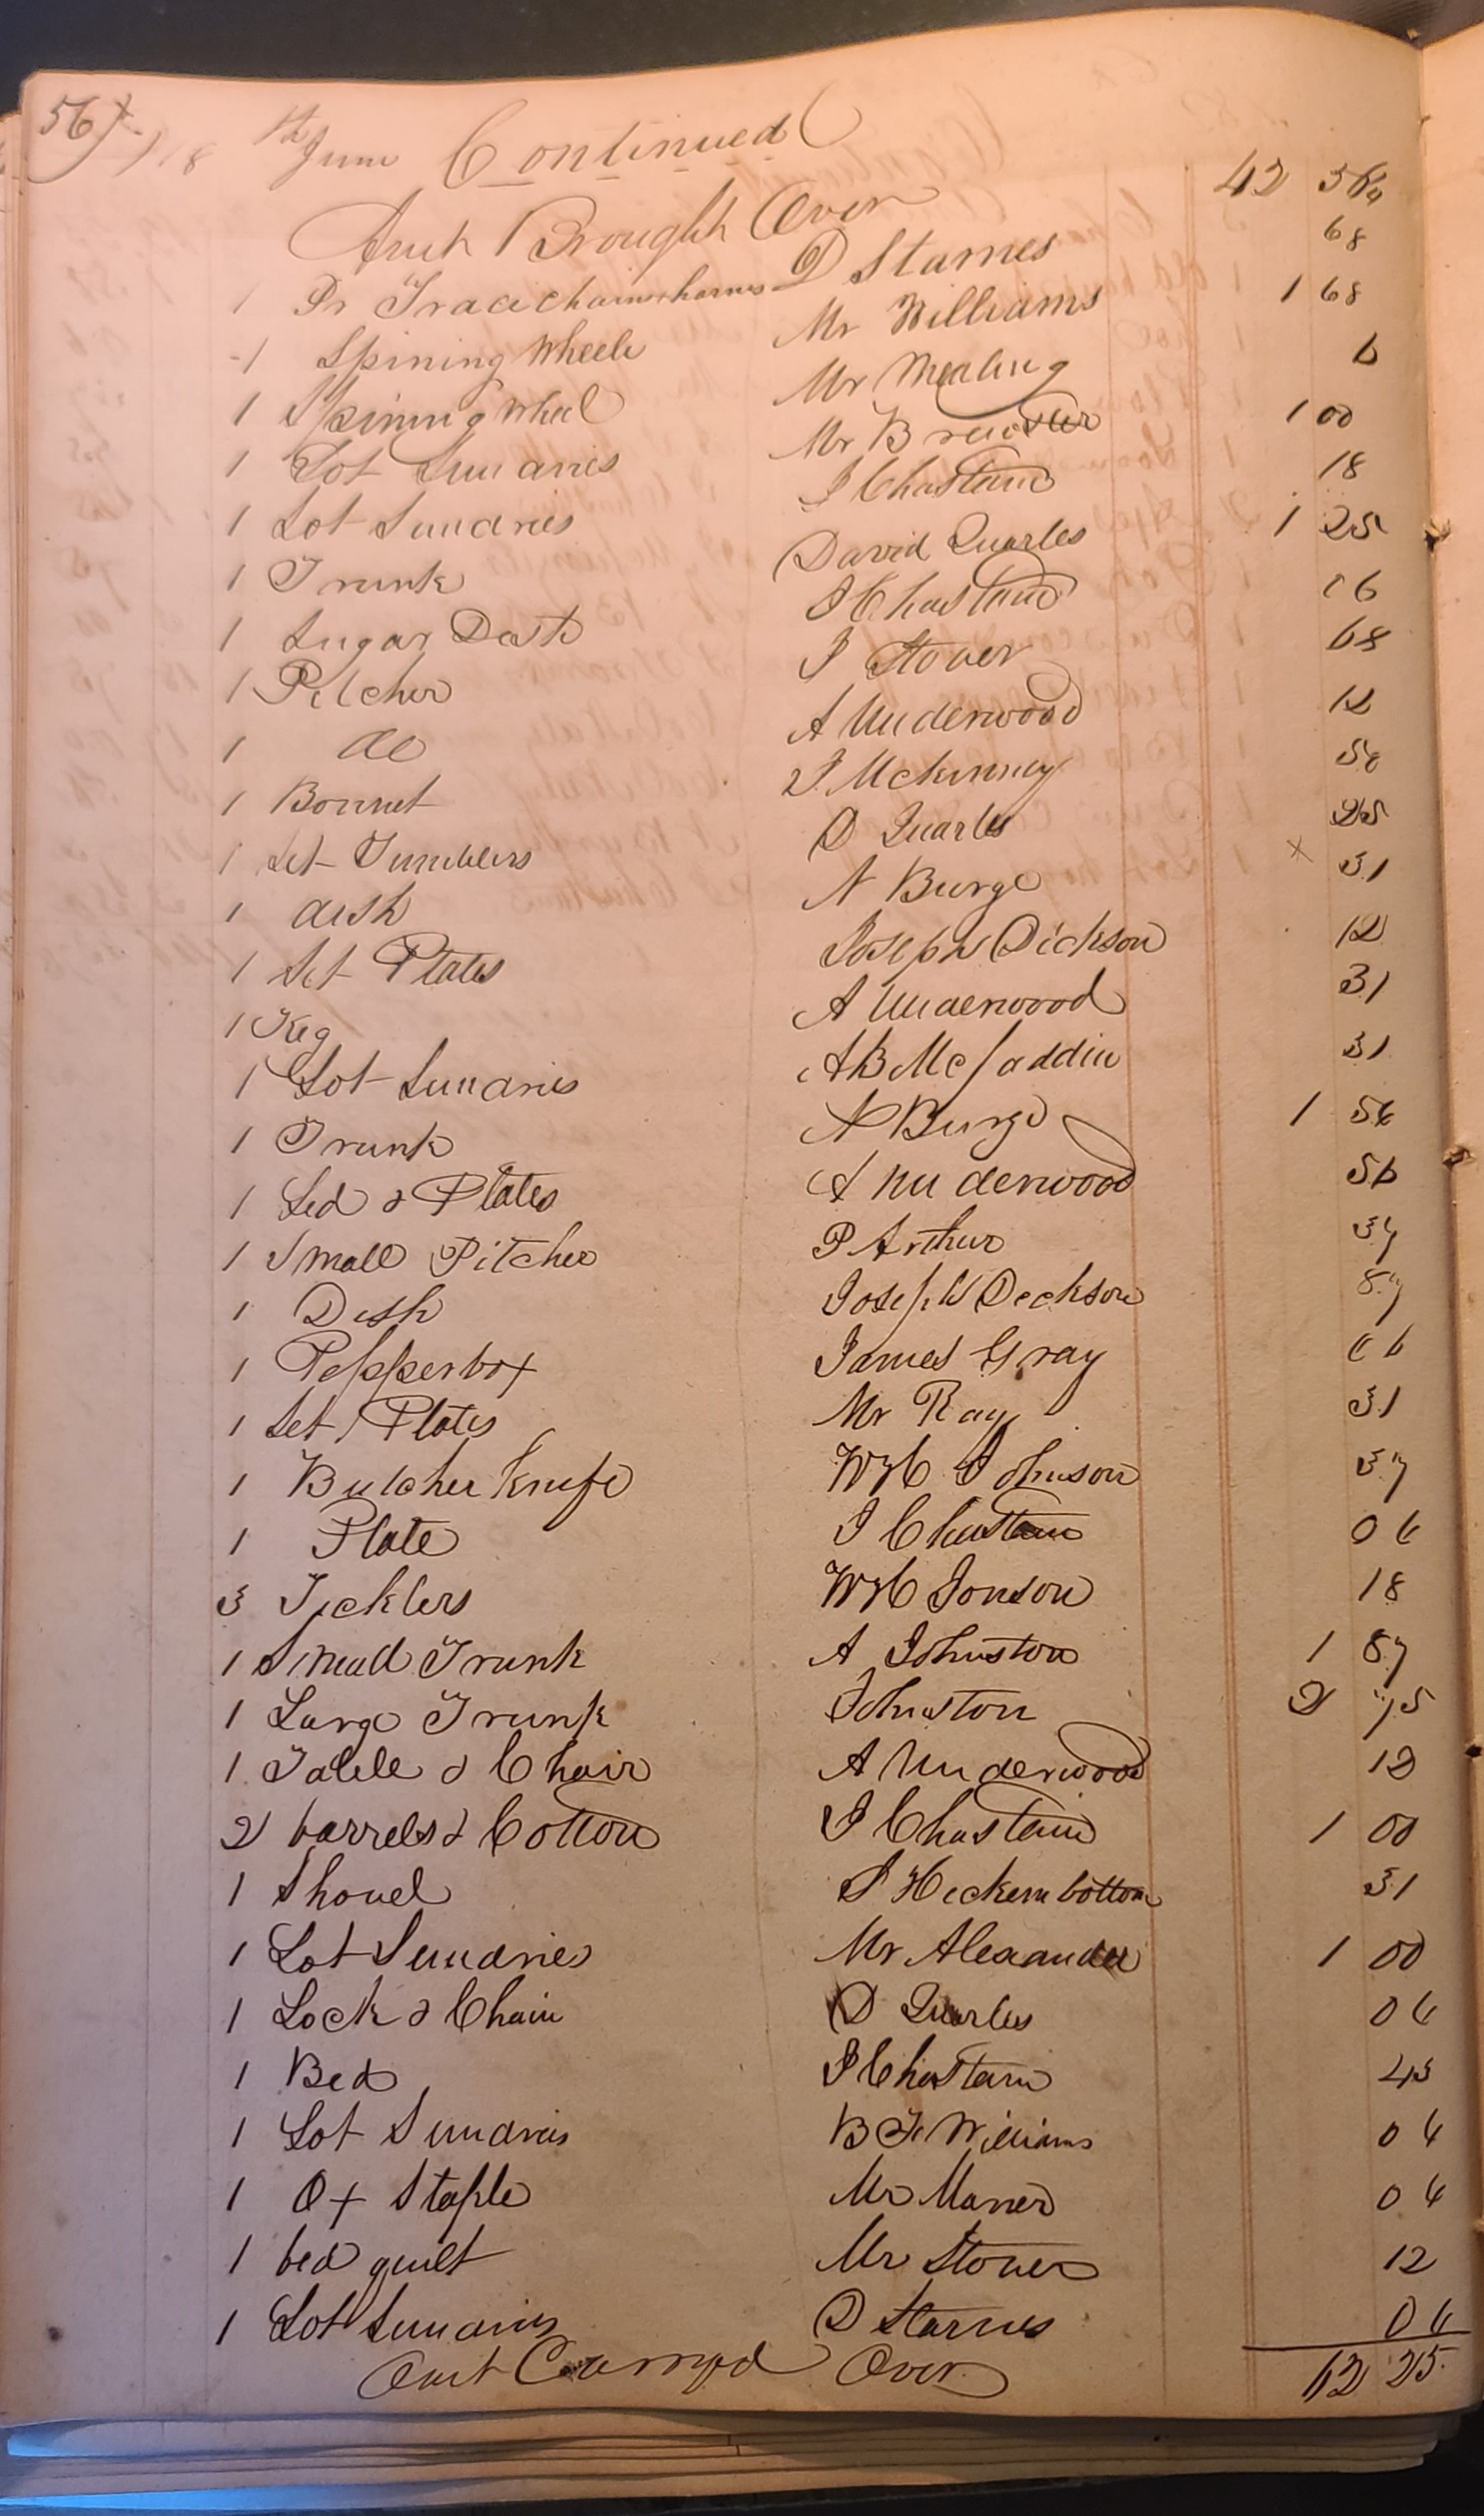 56 18th June Continued
Amt Brought Over 42 56¼
1 Pr Trace chains & hames D Starnes 68
1 Spining Wheele Mr Williams 1 68
1 Spining Wheel Mr Mealing 6
1 Lot Sundries Mr Brewster 1 00
1 Lot Sundries J Chastain 18
1 Trunk David Quarles 1 25
1 Sugar Desk J Chastain 06
1 Pitcher J Stover 68
1 do A Underwood 12
1 Bonnet J Mckinney 50
1 Set Tumblers D Quarles 25
1 dish N Burge × 31
1 Set Plates Joseph Dickson 12
1 Keg A Underwood 31
1 Lot Sundries A B Mcfaddin 31
1 Trunk N Burge 1 56
1 Led & Plates A Underwood 56
1 Small Pitcher P Arthur 37
1 Dish Joseph Deckson 87
1 Pepperbox James Gray 06
1 Set Plates Mr Ray 31
1 Butcher Knife W H C Johnson 37
1 Plate J Chastain 06
3 Ticklers W H C Jonson 18
1 Small Trunk A Johnston 1 87
1 Large Trunk Johnston 2 75
1 Table & Chair A Underwood 12
2 barrels & Cotton J Chastain 1 00
1 Shovel J Hickembottom 31
1 Lot Sundries Mr Alexander 1 00
1 Lock & Chain D Quarles 06
1 Bed J Chastain 43
1 Lot Sundries B F Williams 06
1 Ox Staple Mr Maner 06
1 bed quilt Mr Stover 12
1 Lot Sundries D Starnes 06
Amt Carryd Over 62 25